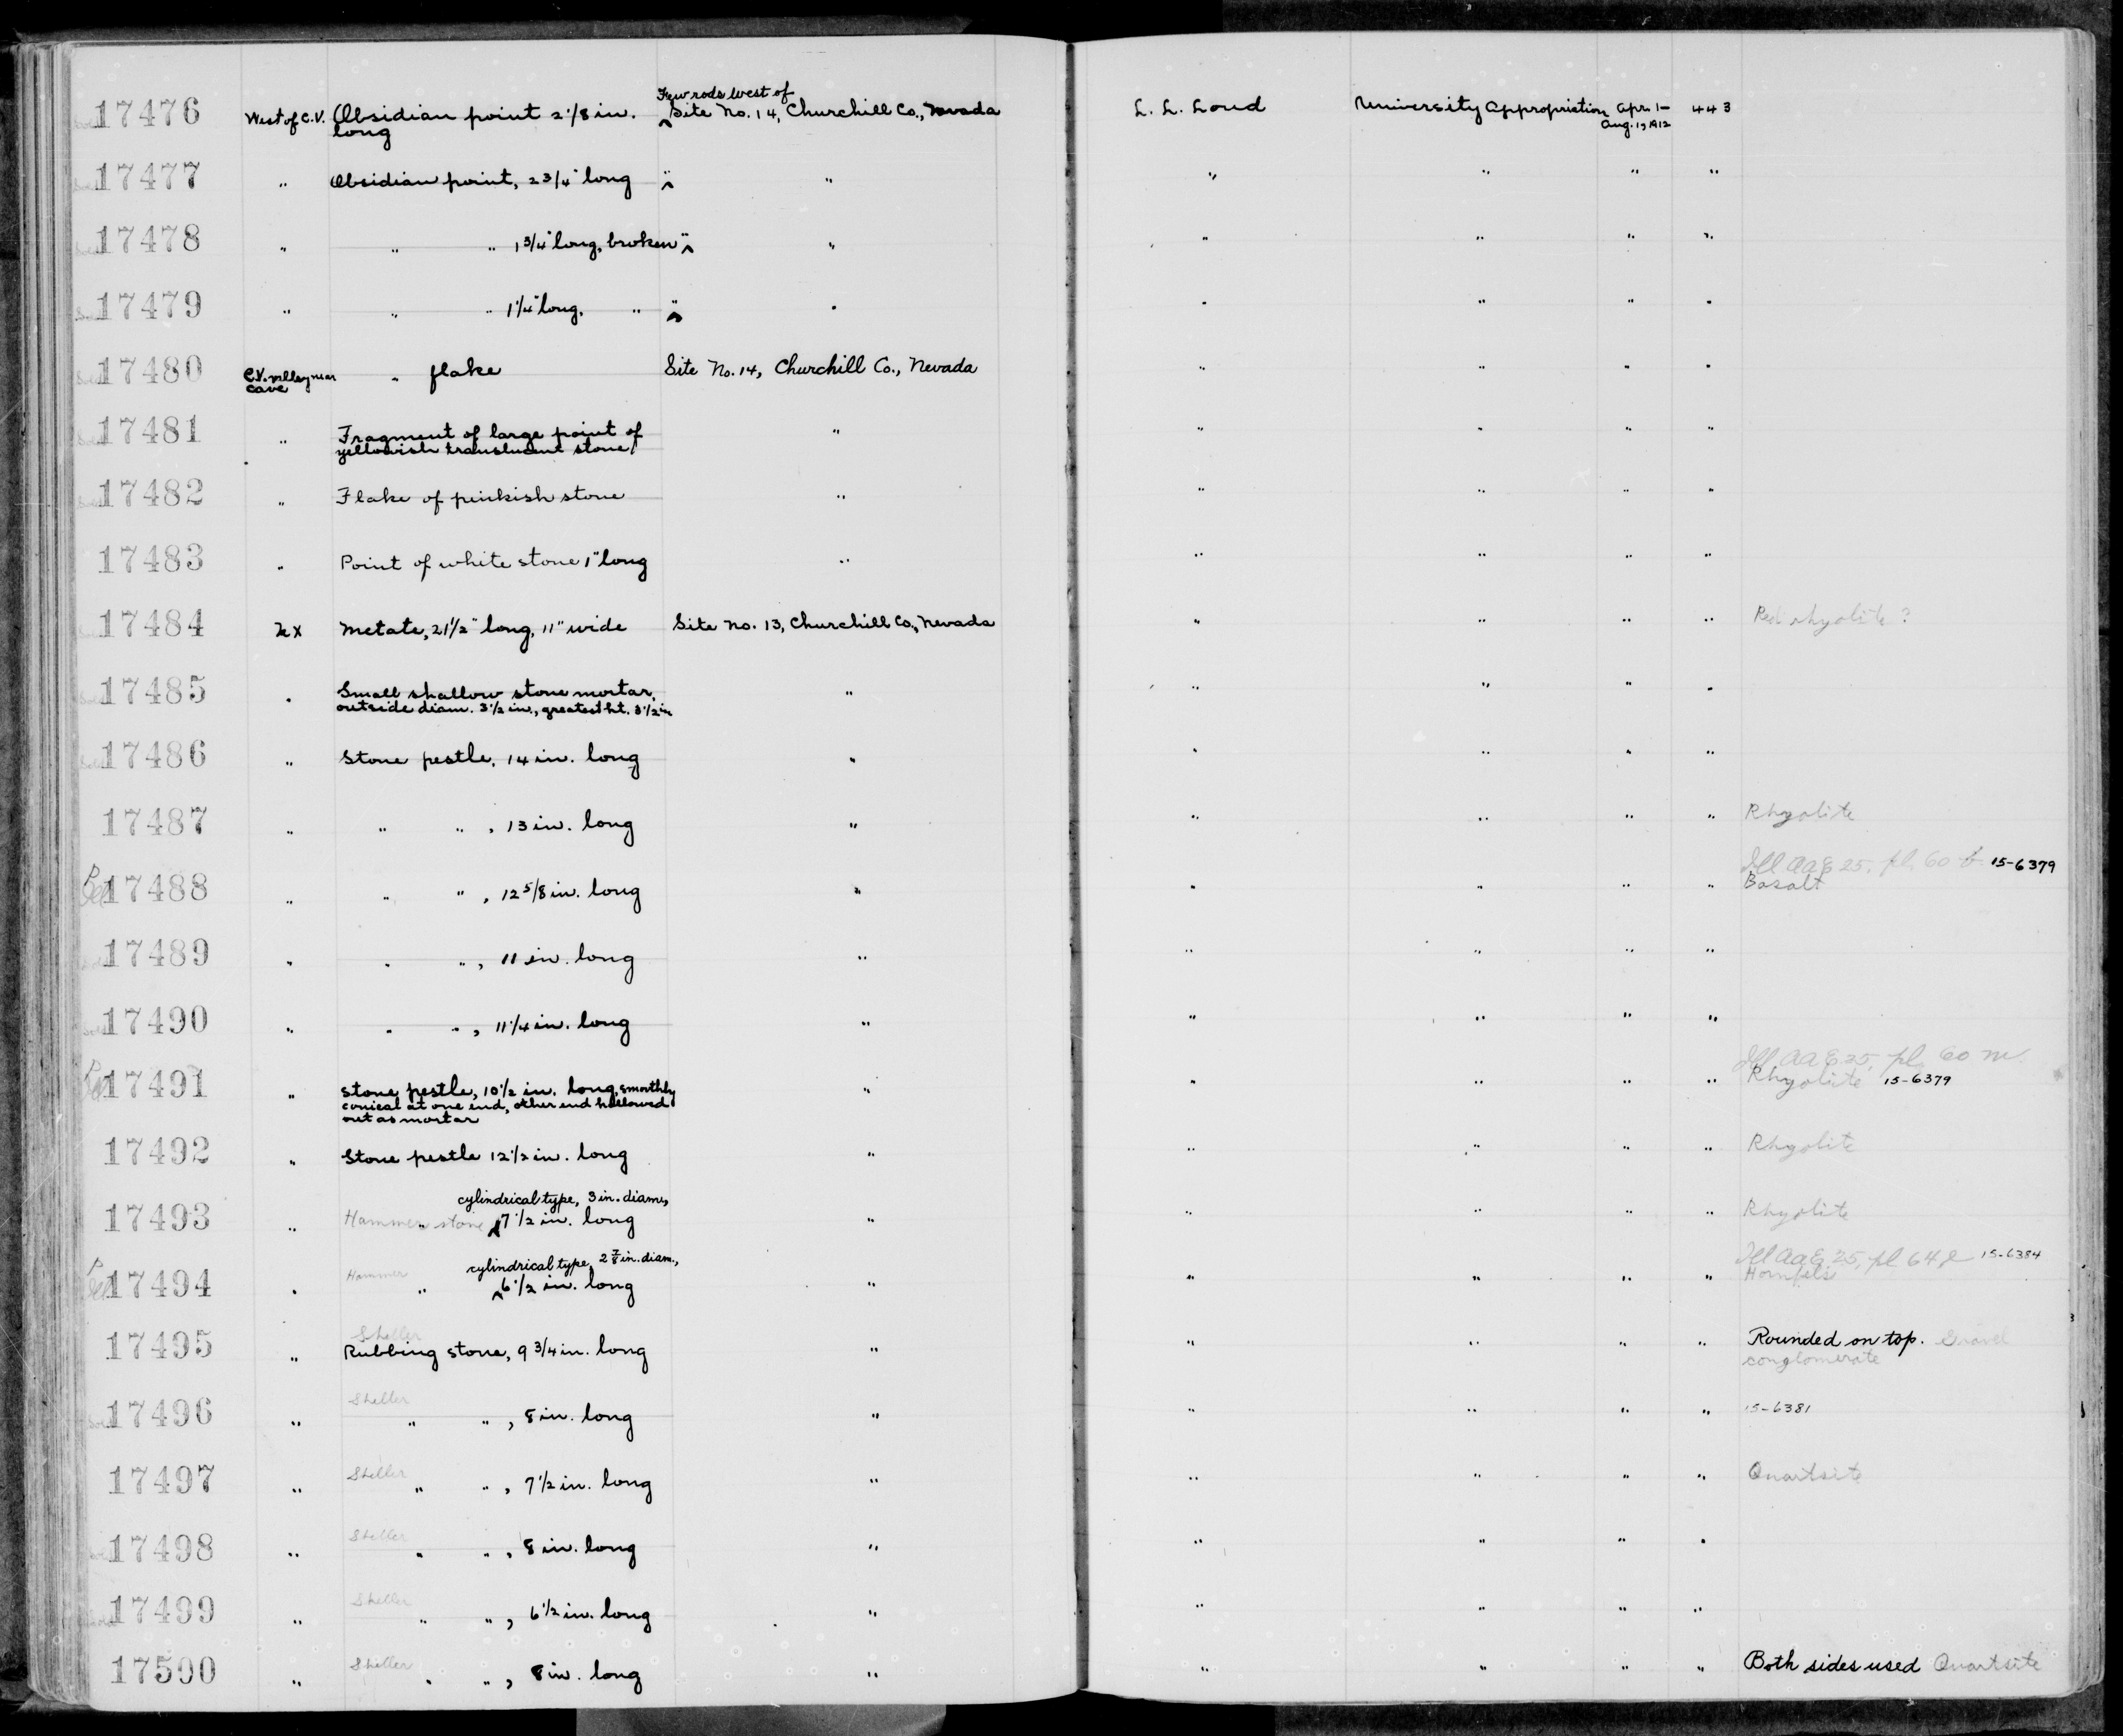 17476 West of C.V. Obsidian point 2 1/8 in. long Few rods west of ‸Site No. 14, Churchill Co., Nevada L. L. Loud University Appropriation Apr. 1- Aug. 1, 1912 443
17477 " Obsidian point, 2 3/4" long " " " " " "
17478 " " " 1 3/4" long, broken " " " " " "
17479 " " " 1 1/4" long, " " " " " " "
17480 C.V. valley near cave " flake Site No. 14, Churchill Co., Nevada " " " "
17481 " Fragment of large point of yellowish translucent stone " " " " "
17482 " Flake of pinkish stone " " " " "
17483 " Point of white stone 1" long " " " " "
17484 hx Metate, 21 1/2" long, 11" wide Site No. 13, Churchill Co., Nevada " " " " Red rhyolite ?
17485 " Small shallow stone mortar, outside diam. 3 1/2 in., greatest ht. 3 1/2 in " " " " "
17486 " Stone pestle, 14 in. long " " " " "
17487 " " " , 13 in. long " " " " " Rhyolite
Ill AaE 25, pl. 60 b 15-6379
17488 " " " , 12 5/8 in. long " " " " " Basalt
17489 " " " , 11 in. long " " " " "
17490 " " " , 11 1/4 in. long " " " " "
Ill AaE 25, pl. 60 m
17491 " Stone pestle, 10 1/2 in. long, smoothly conical at one end, other end hollowed out as mortar " " " " " Rhyolite 15-6379
17492 " Stone pestle 12 1/2 in. long " " " " " Rhyolite
cylindrical type, 3 in. diam.,
17493 " Hammer stone " ‸7 1/2 in. long " " " " " Rhyolite
cylindrical type, 2 7/8 in. diam., Ill AaE 25, pl 64 15-6384
17494 " Hammer " ‸6 1/2 in. long " " " " " Hornfels
Sheller
17495 " Rubbing stone, 9 3/4 in. long " " " " " Rounded on top. Gravel conglomerate
Sheller
17496 " " " , 8 in. long " " " " " 15-6381
Sheller
17497 " " " , 7 1/2 in. long " " " " " Quartsite
Sheller
17498 " " " , 8 in. long " " " " "
Sheller
17499 " " " , 6 1/2 in. long " " " " "
Sheller
17500 " " " , 8 in. long " " " " " Both sides used Quartsite